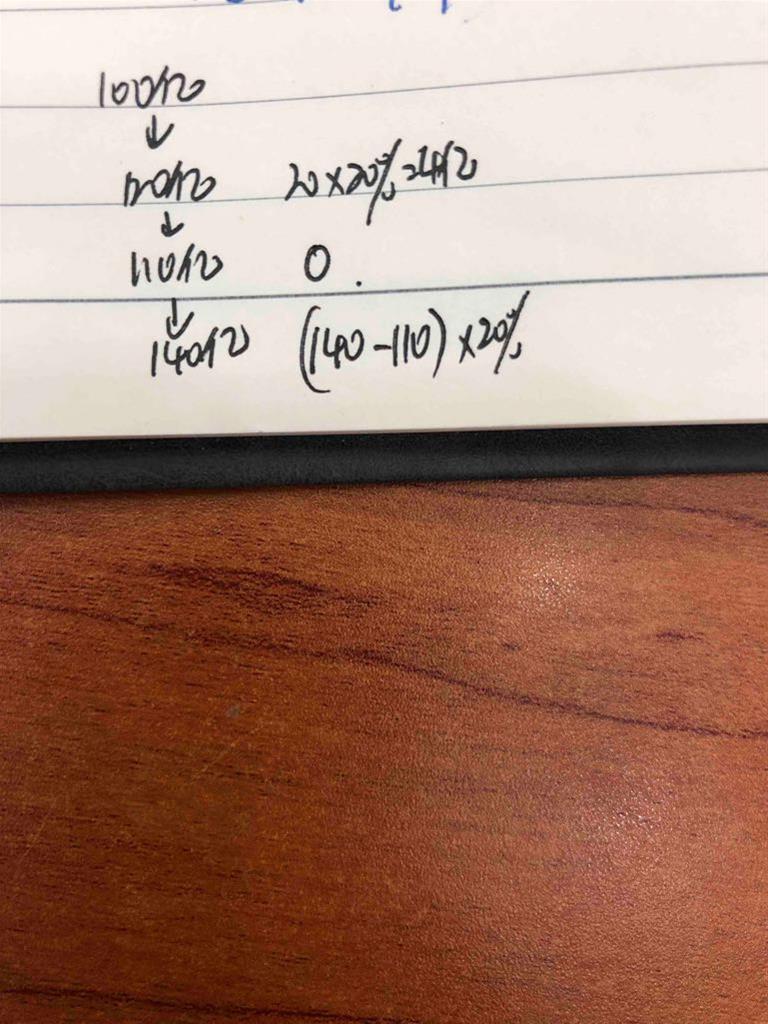 100亿
↓
120亿 20×20%=4亿
↓
110亿 0.
↓
140亿 (140-110)×20%